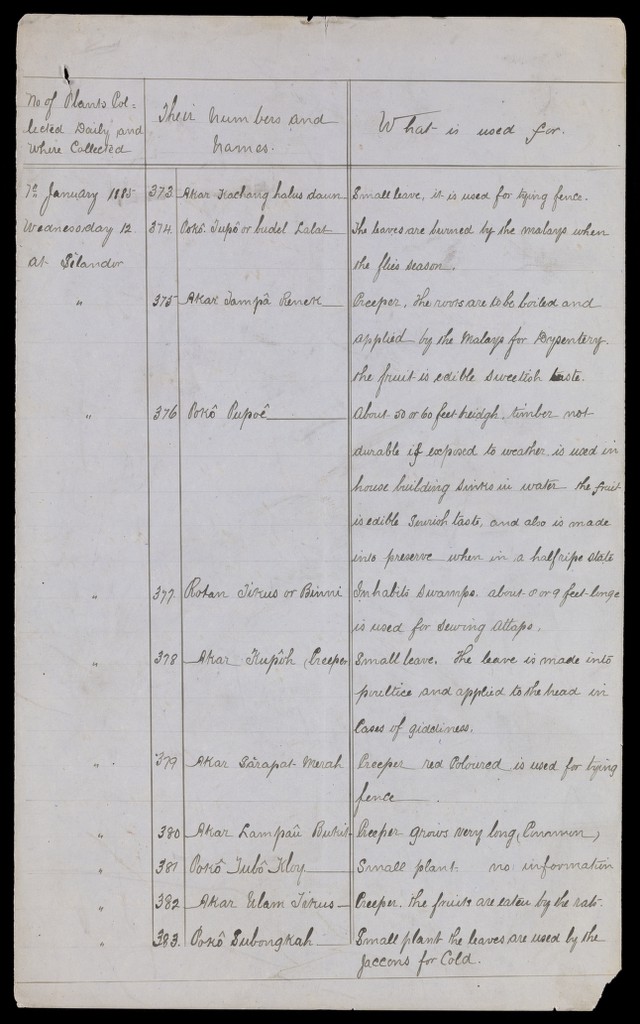 No of Plants Col-
lected Daily and
where Collected
Their numbers and
names.
What is used for.
7th January 1885
373 Akar Kachang halus daun
Small leave, it is used for tying fence.
Wednessday 12
374 Pokô Tupô or budel Lalat
The leaves are burned by the malays when
at Sĕlandor
the flies season.
" 375 Akar Tampâ Renek
Creeper, The roots are to be boiled and
applied by the Malays for Dysentery.
the fruit is edible sweetish taste.
" 376 Pokô Pupoê
About 50 or 60 feet heidgh, timber not
durable if exposed to weather is used in
house building sinks in water the fruit
is edible Sourish taste, and also is made
into preserve when in a half ripe state
" 377 Rotan Tikus or Binni
Inhabits swamps about 8 or 9 feet longe
is used for sewing attaps.
" 378 Akar Kupôh Creeper
Small leave. The leave is made into
poultice and applied to the head in
Cases of giddiness.
" 379 Akar Sârapat Merah
Creeper red Coloured is used for tying
fence
" 380 Akar Lampaû Bukit
Creeper grows very long (Cinnamon)
" 381 Pokô Tubô Kloy
Small plant no information
" 382 Akar Ulam Tikus
Creeper. the fruits are eaten by the rats.
" 383. Pokô Subongkah
Small plant the leaves are used by the
Jaccons for Cold.